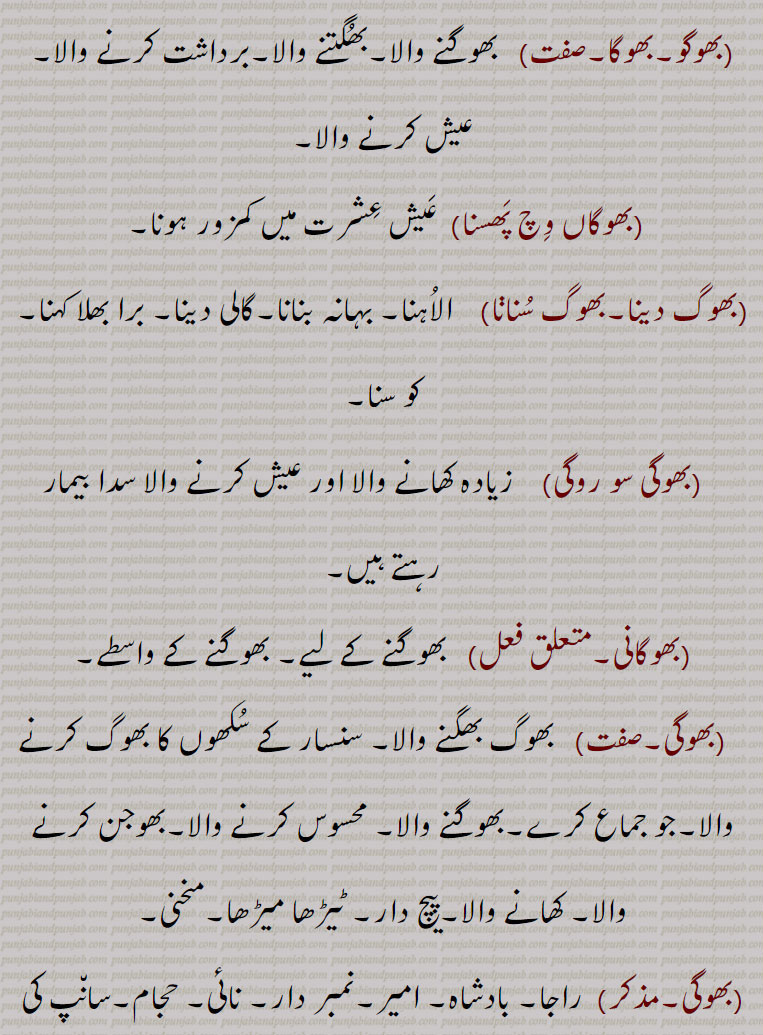 (بھوگو۔بھوگا۔صفت) بھوگنے والا۔بھُگتنے والا۔برداشت کرنے والا۔
عیش کرنے والا۔
(بھوگاں وِچ پَھسنا) عَیش عِشرت میں کمزور ہونا۔
(بھوگ دینا۔بھوگ سُناݨا) الاُہنا۔ بہانہ بنانا۔گالی دینا۔ برا بھلا کہنا۔
کو سنا۔
(بھوگی سو روگی) زیادہ کھانے والا اور عیش کرنے والا سدا بیمار
رہتے ہیں۔
(بھوگانی۔متعلق فعل) بھوگنے کے لیے۔ بھوگنے کے واسطے۔
(بھوگی۔صفت) بھوگ بھگنے والا۔ سنسار کے سُکھوں کا بھوگ کرنے
والا۔جو جماع کرے۔بھوگنے والا۔ محسوس کرنے والا۔بھوجن کرنے
والا۔ کھانے والا۔پیچ دار۔ ٹیڑھا میڑھا۔منحنی۔
(بھوگی۔مذکر) راجا۔ بادشاہ۔ امیر۔نمبر دار۔ نائی۔ حجام۔سانّپ کی